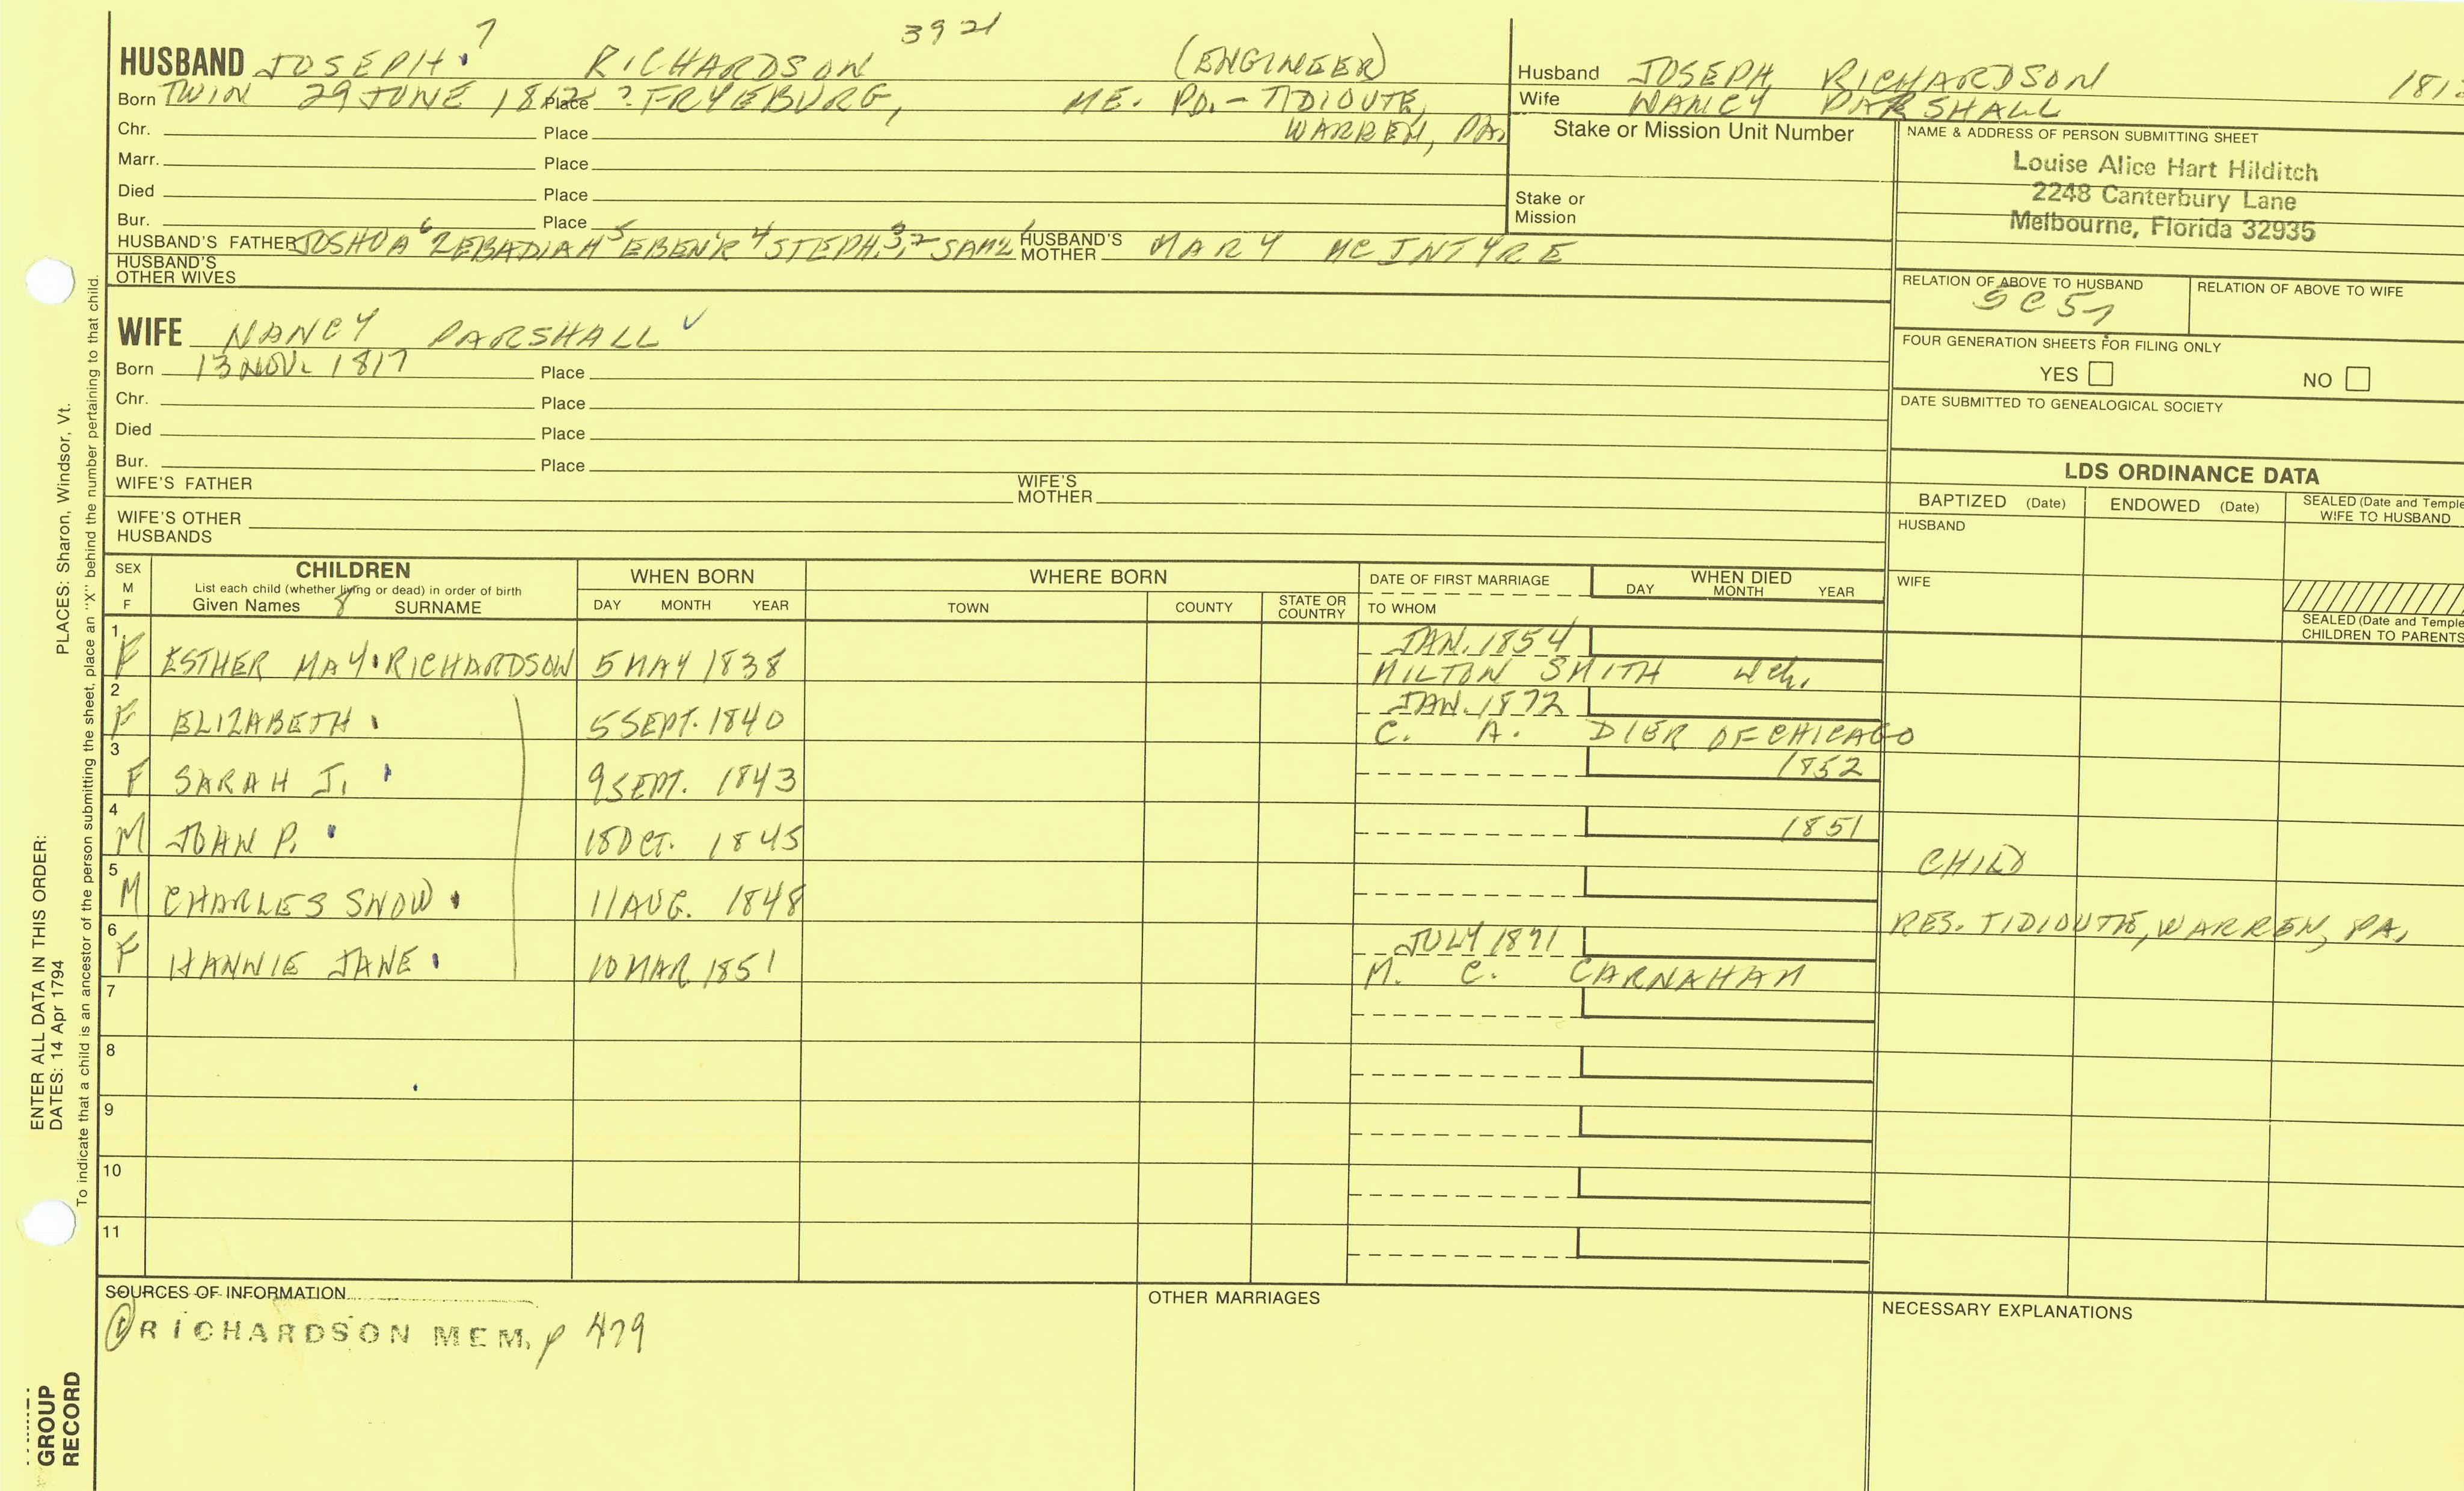 7 3921
HUSBAND JOSEPH RICHARDSON (ENGINEER)
Born TWIN 29 JUNE 1812 Place ? FRYEBURG, ME. PO.- TIDIOUTE,
Chr. Place WARREN, PA.
Marr. Place
Died Place
Bur. Place
HUSBAND'S FATHER JOSHUA 6 ZEBADIAH 5 EBEN'R 4 STEPH. 3,2 SAM'L 1 HUSBAND'S MOTHER MARY MCINTYRE
HUSBAND'S
OTHER WIVES
Husband JOSEPH RICHARDSON 181
Wife NANCY PARSHALL
Stake or Mission Unit Number
Stake or
Mission
NAME & ADDRESS OF PERSON SUBMITTING SHEET
Louise Alice Hart Hilditch
2248 Canterbury Lane
Melbourne, Florida 32935
RELATION OF ABOVE TO HUSBAND RELATION OF ABOVE TO WIFE
5C57
FOUR GENERATION SHEETS FOR FILING ONLY
YES NO
DATE SUBMITTED TO GENEALOGICAL SOCIETY
WIFE NANCY PARSHALL ✓
Born 13 NOV. 1817 Place
Chr. Place
Died Place
Bur. Place
WIFE'S FATHER WIFE'S MOTHER
WIFE'S OTHER
HUSBANDS
LDS ORDINANCE DATA
BAPTIZED (Date) ENDOWED (Date) SEALED (Date and Temple
WIFE TO HUSBAND
HUSBAND
WIFE
SEALED (Date and Temple
CHILDREN TO PARENTS
SEX
M
F
CHILDREN
List each child (whether living or dead) in order of birth
Given Names 8 SURNAME
WHEN BORN
DAY MONTH YEAR
WHERE BORN
TOWN COUNTY STATE OR COUNTRY
DATE OF FIRST MARRIAGE
TO WHOM
WHEN DIED
DAY MONTH YEAR
1 JAN. 1854
F ESTHER MAY RICHARDSON 5 MAY 1838 MILTON SMITH
2 JAN. 1872
F ELIZABETH 5 SEPT. 1840 C. A. DIER OF CHICAGO
3 1852
F SARAH J. 9 SEPT. 1843
4 1851
M JOHN P. 18 OCT. 1845
CHILD
5
M CHARLES SNOW 11 AUG. 1848
RES. TIDIOUTE, WARREN, PA.
6 JULY 1871
F HANNIE JANE 10 MAR. 1851 M. C. CARNAHAN
7
8
9
10
11
SOURCES OF INFORMATION
① RICHARDSON MEM. p 479
OTHER MARRIAGES
NECESSARY EXPLANATIONS
ENTER ALL DATA IN THIS ORDER:
DATES: 14 Apr 1794 PLACES: Sharon, Windsor, Vt.
To indicate that a child is an ancestor of the person submitting the sheet, place an "X" behind the number pertaining to that child.
GROUP
RECORD